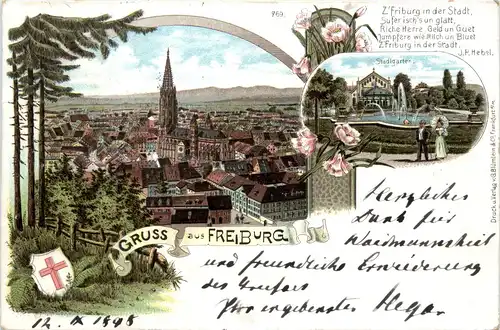 769.
Z'Friburg in der Stadt,
Sufer isch's un glatt,
Riche Herre Geld un Guet
Jumpfere wie Milch un Bluet
Z'Friburg in der Stadt.
J. P. Hebel.
Stadtgarten.
GRUSS aus FREIBURG
Herzlichen
Dank für
Waidmannsheil
und freundliche Erwiederung
des Grußes
Ihr ergebenster Hegar
12. IX 1898